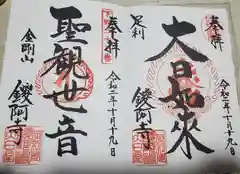 奉拝
足利
大日如来
鑁阿寺
令和二年十月十九日
奉拝
令和二年十月十九日
聖観世音
金剛山
鑁阿寺